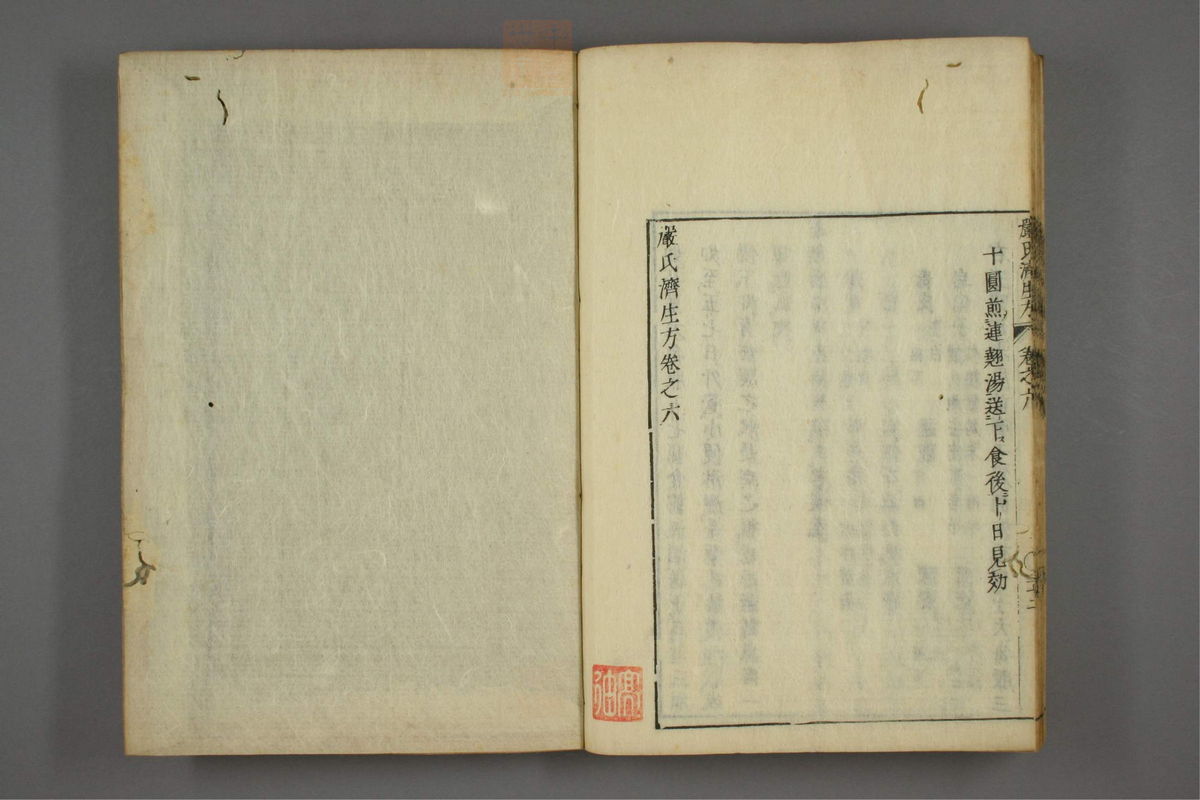 嚴氏濟生方 卷之六
十圓煎連翹湯送下食後十日見効
嚴氏濟生方卷之六